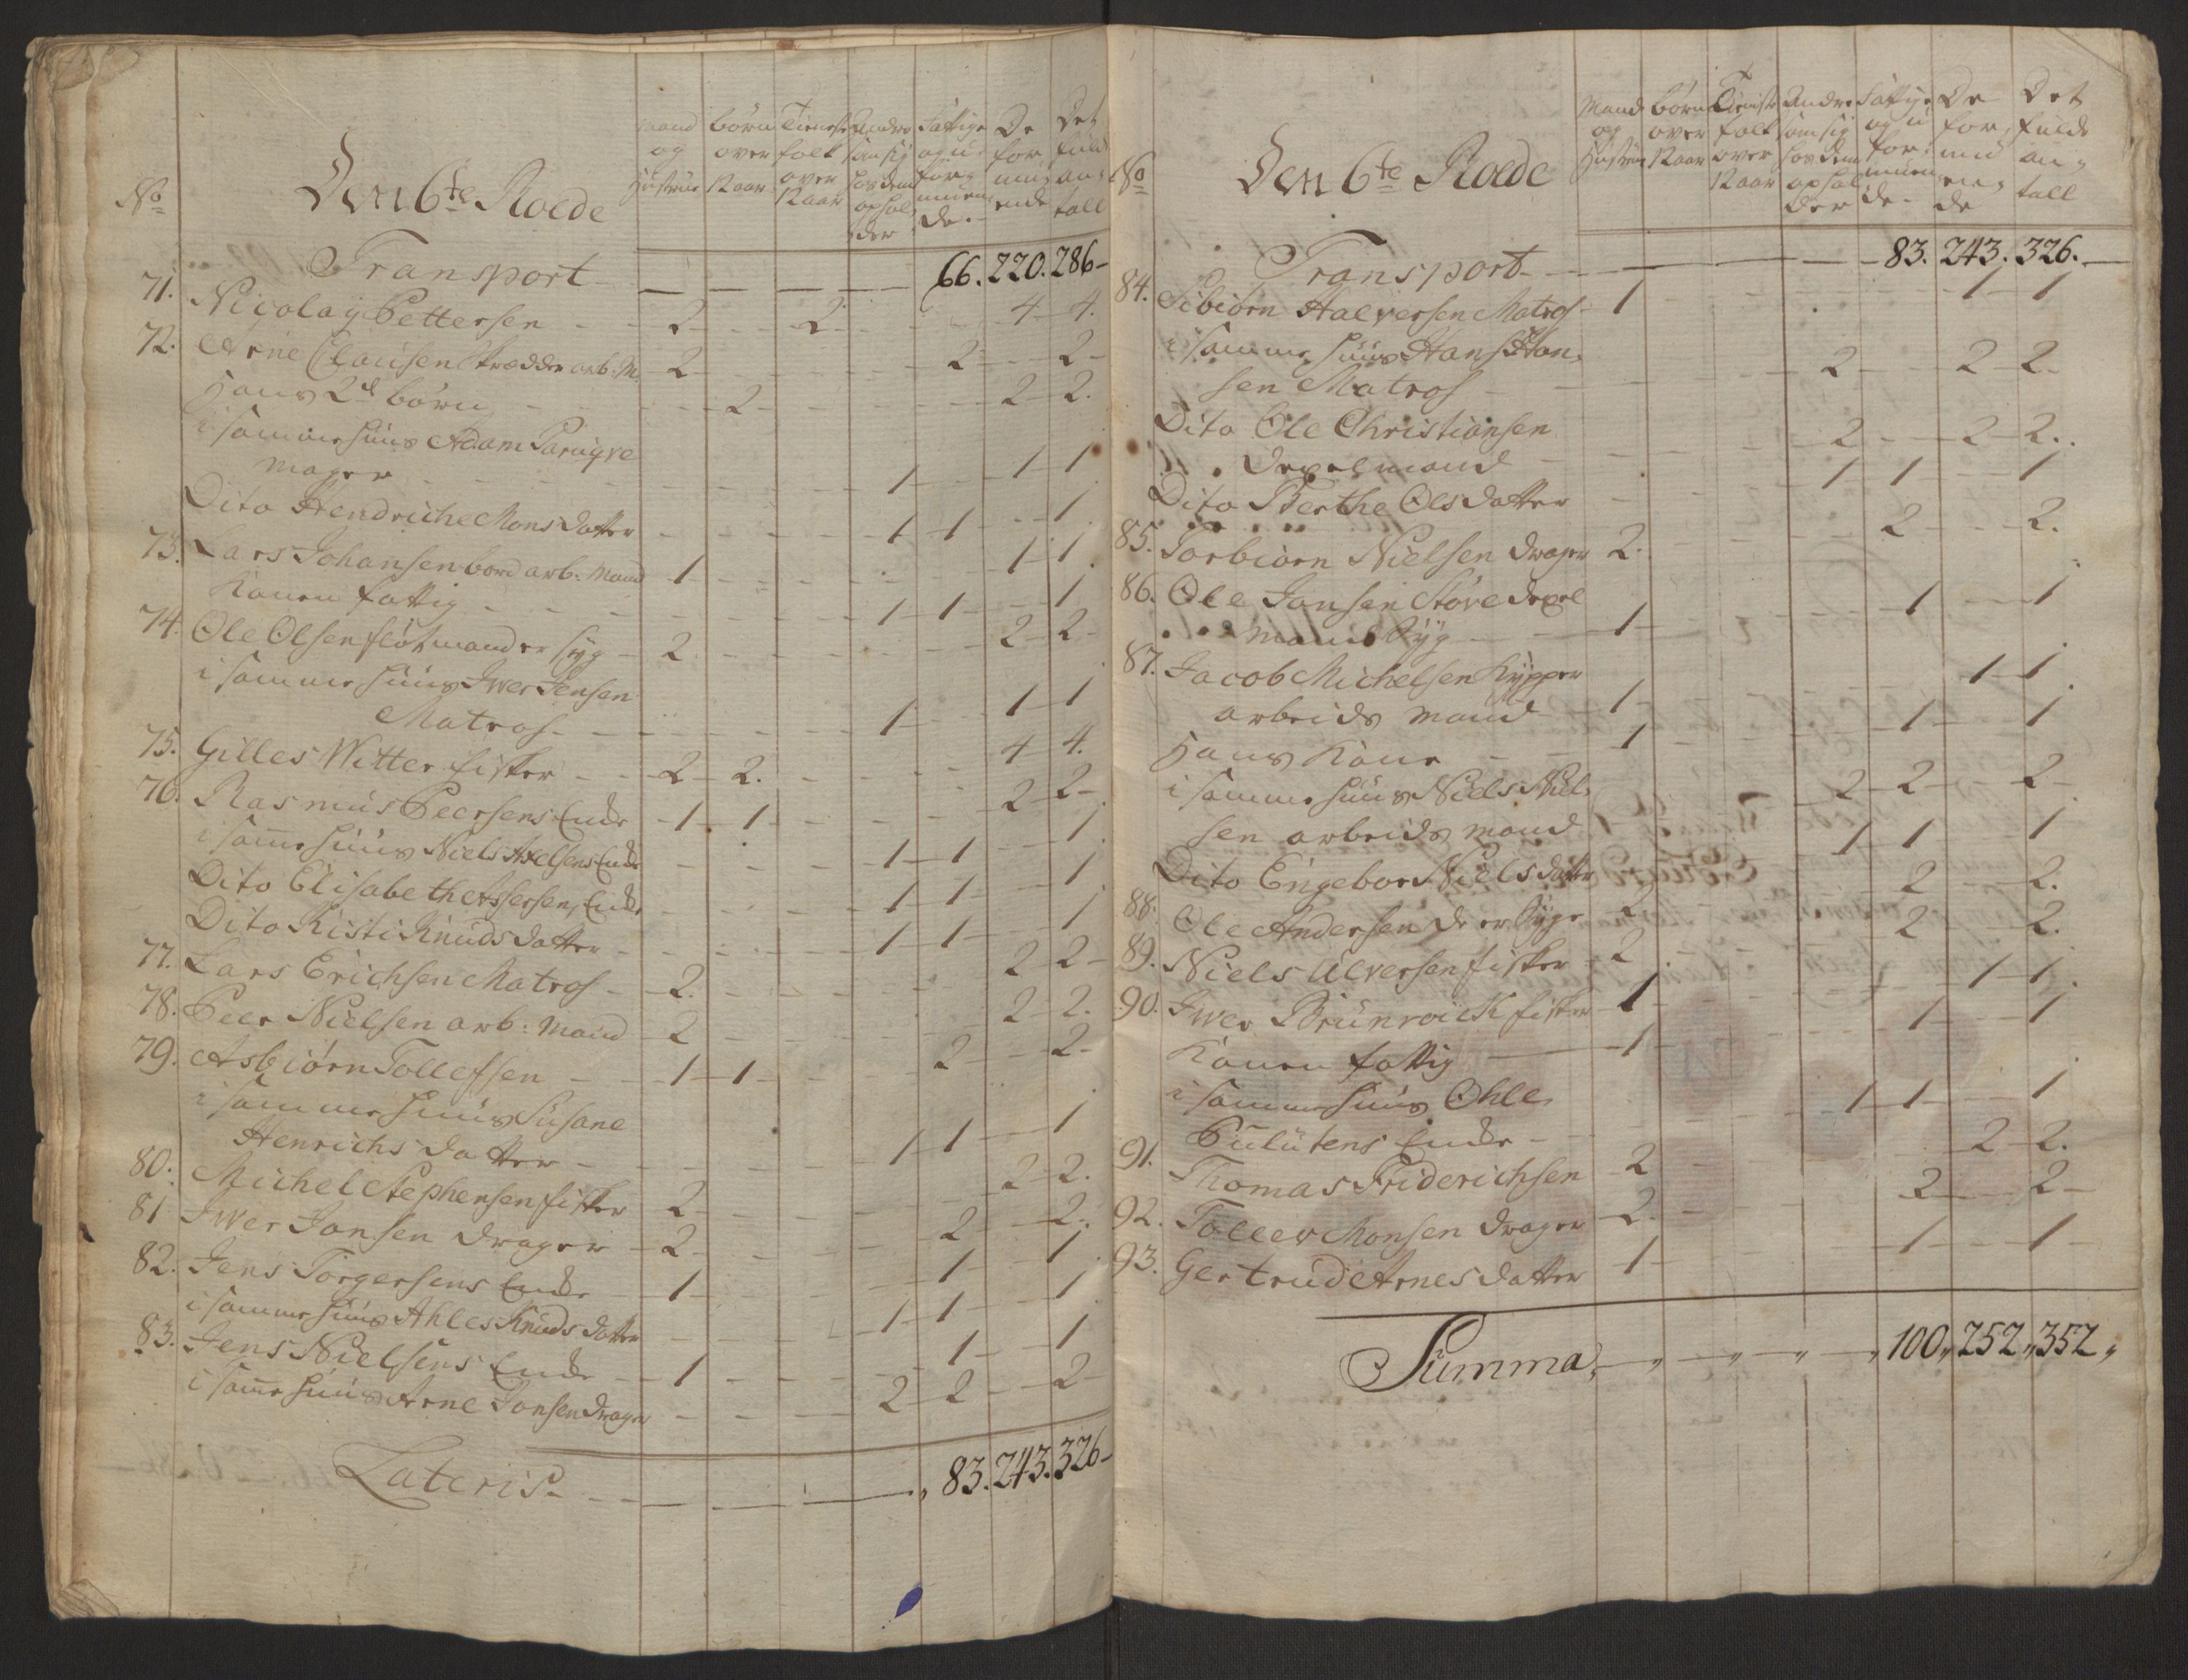 No
Den 6te Roede
Mand og Hustrue
børn over 12 aar
Tieneste folk over 12 aar
Andre som sig hos dem ophol der
Fattige og u for muen de.
De for mu ende
Det fulde an tall
Transport — — — — 66. 220. 286 -
71. Nicolay Pettersen - - 2 - - 2 - - - 4 - 4.
72. Arne Clausen skrædder arb: M. 2 - - - - 2 - - 2 -
Hans 2de børn - - 2 - - - - 2 - 2.
i samme Huus Adam Paruqve
mager - - - - - 1 - - 1 - 1
Dito Hendriche Mons datter - - - - 1 - 1 - - 1
73. Lars Johansen bord arb: Mand 1 - - - - - 1 - 1
Konen fattig - - - - - 1 - 1 - - 1
74. Ole Olsen flötmand er syg - 2 - - - - - 2 - 2 -
i samme Huus Iwer Jensen
Matros - - - - - 1 - - 1 - 1
75. Gilles Witter fisker - - 2 - 2. - - - - 4 - 4.
76. Rasmus Peersens Enke - 1 - 1 - - - - 2 - 2 -
i samme Huus Niels Axelsens Enke - - - 1 - 1 - - 1
Dito Elisabeth Assersen, Enke - - - 1 - 1 - - 1
Dito Kisti Knuds datter - - - - 1 - 1 - - 1
77. Lars Erichsen Matros - 2. - - - - - 2 - 2 -
78. Peer Nielsen arb: Mand 2 - - - - - 2 - 2.
79. Asbiörn Tollefsen - - 1 - 1 - - - 2 - - 2 -
i samme Huus Susane
Henrichs datter - - - - - 1 - 1 - - 1
80. Michel Stephensen fisker 2 - - - - - 2 - 2.
81 Iwer Jansen drager - 2 - - - - 2 - - 2.
82. Jens Torgersens Enke - 1 - - - - 1 - - 1
i samme Huus Ahles Knuds datter - - - 1 - 1 - - 1
83. Jens Nielsens Enke - 1 - - - - 1 - - 1
i samme Huus Arne Jonsen drager - - - 2 - 2 - - 2 -
Lateris - - — — — — 83. 243. 326 -
No
Den 6te Roede
Mand og Hustrue
børn over 12 aar
Tieneste folk over 12 aar
Andre som sig hos dem ophol der
Fattige og u for muen de.
De for mu en de
Det fulde an tall
Transport - - — — — — 83. 243. 326. —
84. Sibiörn Halversen Matros - 1 - - - - - 1 - 1
i samme Huus Hans Han
sen Matros - - - - - 2 - - 2 - 2.
Dito Ole Christiansen
Drexelmand - - - - 2 - - 2 - 2..
Dito Berthe Ols datter - - - - 1 - 1 - - 1
85. Torbiörn Nielsen drager 2. - - - - 2 - - 2.
86. Ole Jansen Störe Drexel
mand Syg - - 1 - - - - 1 - - 1
87. Jacob Michelsen Kypper
arbeids mand - 1 - - - - - 1 - 1
Hans Kone - - 1 - - - - 1 - - 1
i samme Huus Niels Niel
sen arbeids mand - - - 2 - 2 - - 2 -
Dito Engebor Niels datter - - - 1 - 1 - 1
88. Ole Andersen de er Syge 2 - - - - 2 - - 2.
89. Niels Ulversen fisker - 2 - - - - 2 - - 2.
90. Iwer Brunroick fisker - 1 - - - - - 1 - 1
Konen fattig — 1 - - - - 1 - - 1
i samme Huus Ohle
Pulütens Enke - - - - - 1 - 1 - - 1
91. Thomas Friderichsen 2 - - - - - 2 - 2.
92. Toller Monsen drager 2. - - - - 2 - - 2 -
93. Gertrud Arnes datter 1 - - - - 1 - - 1 -
Summa, — „ — „ — „ — „ 100 „ 252 „ 352 „